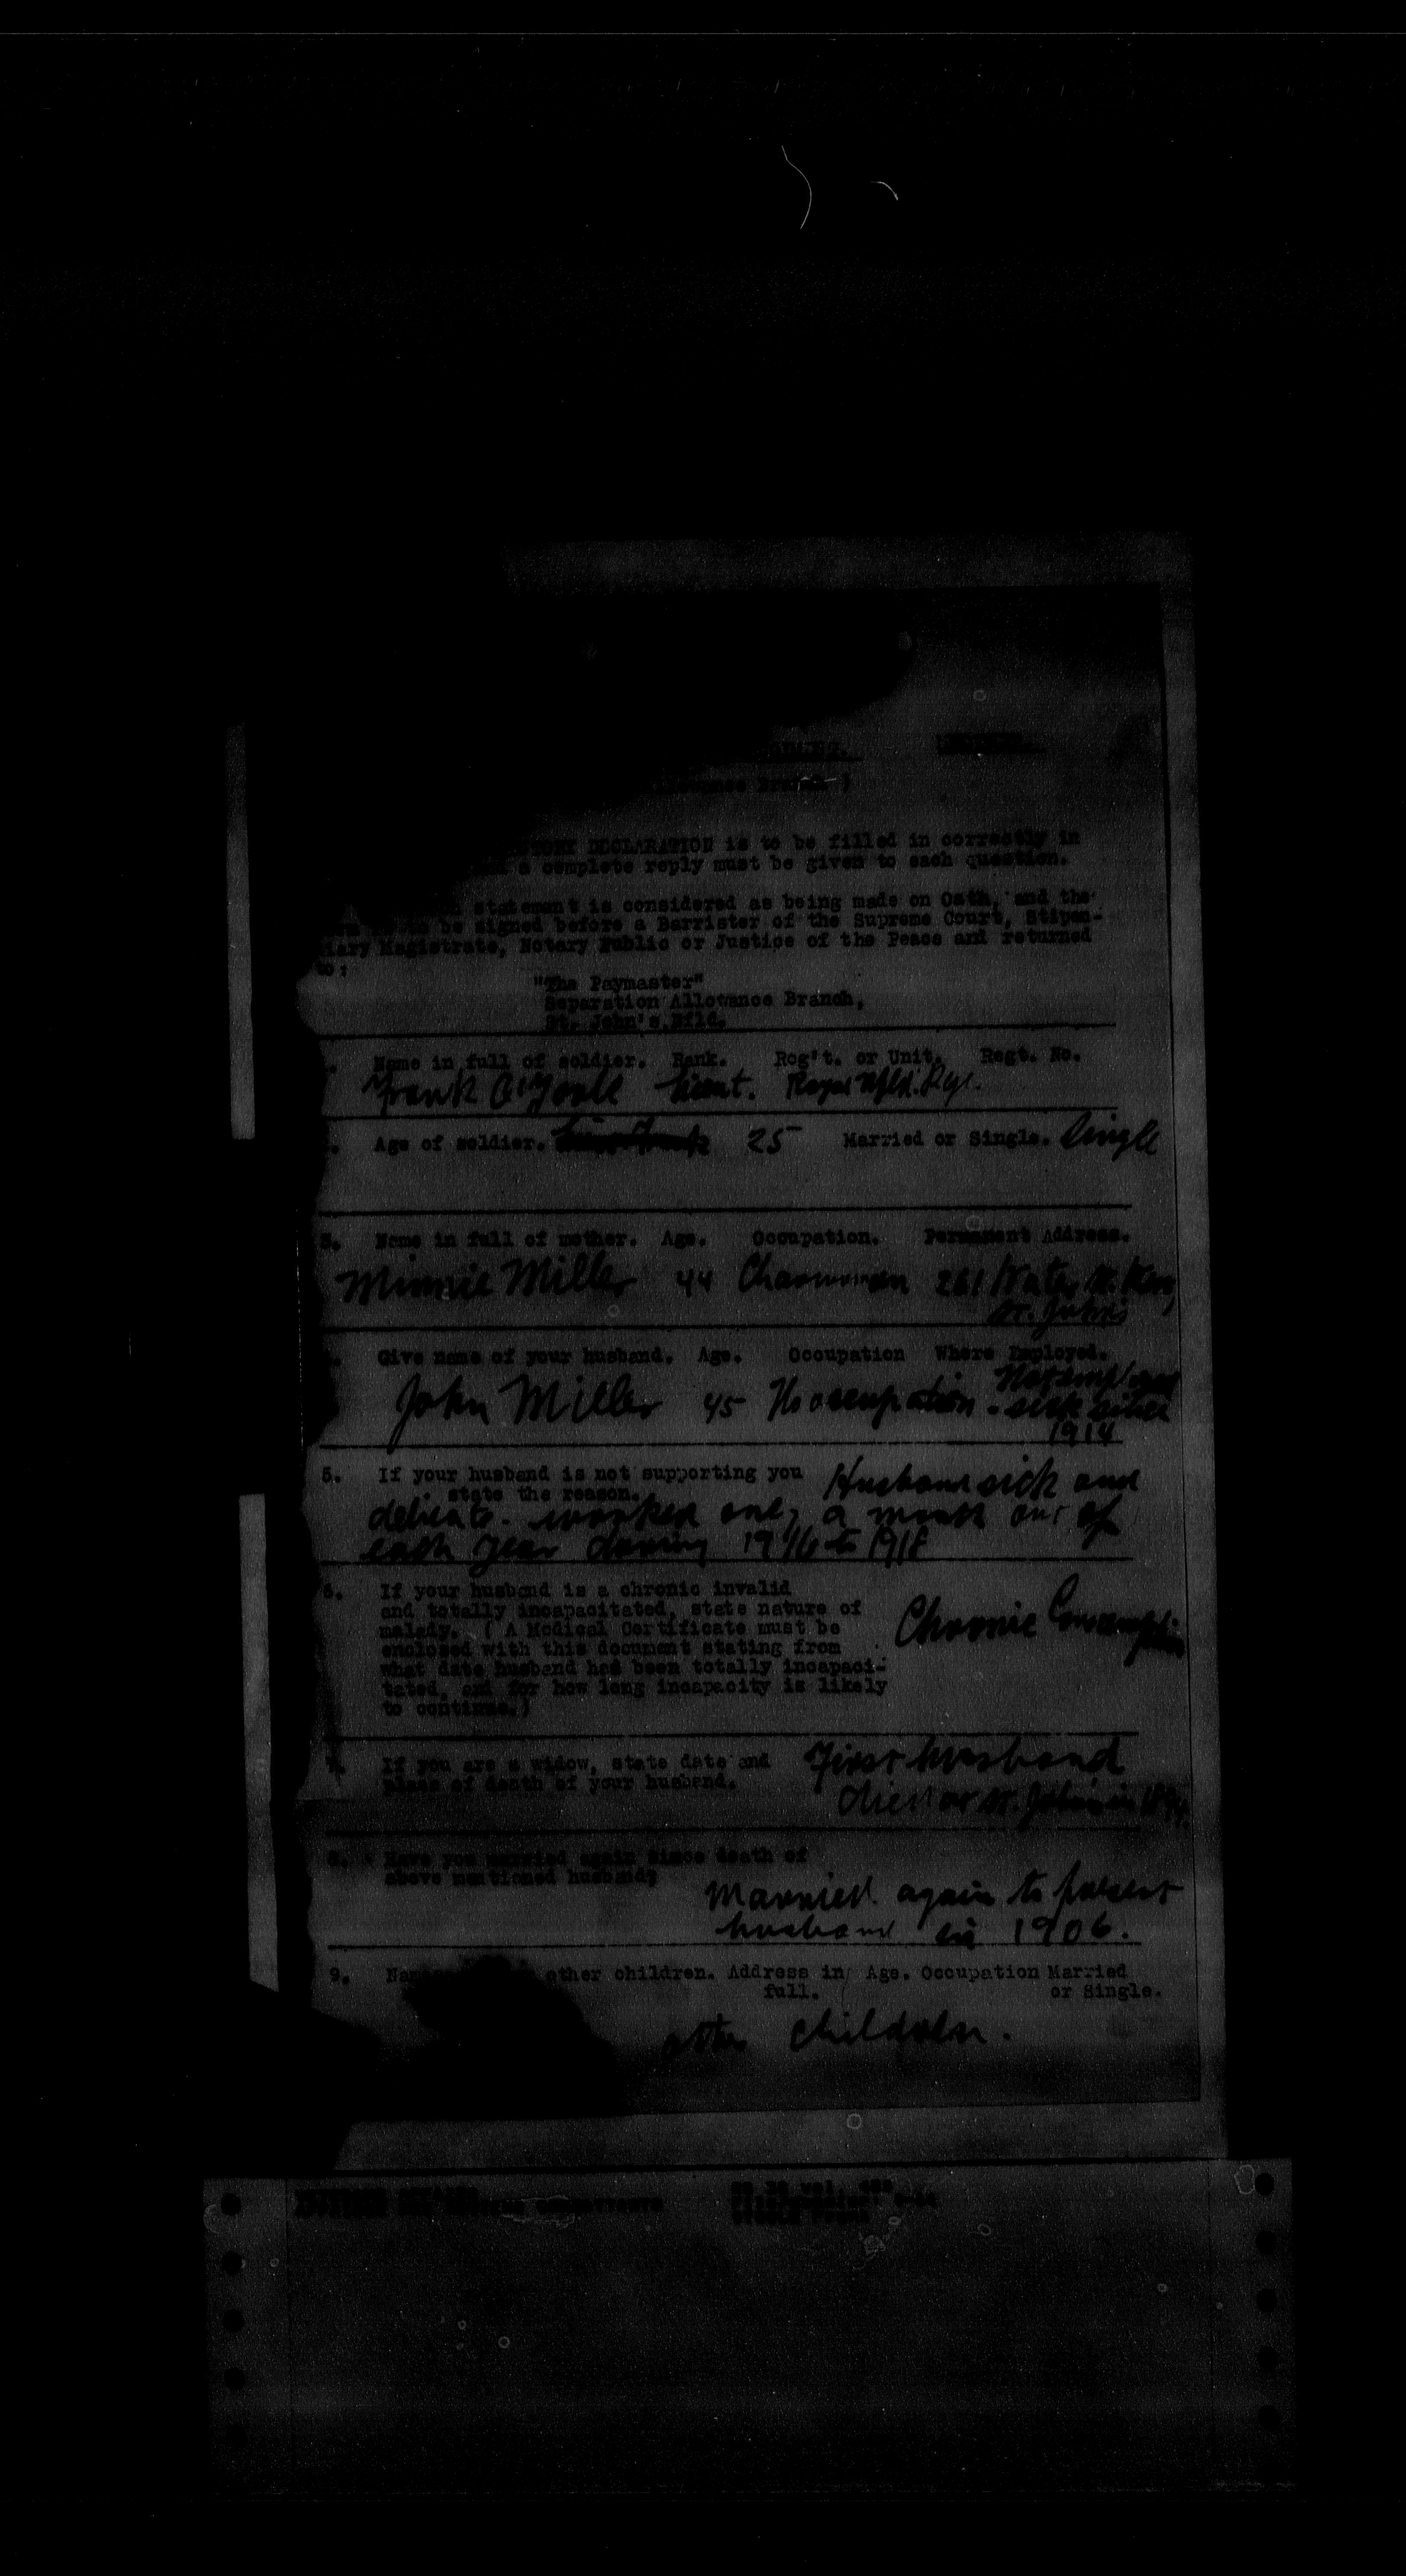 Allowance Branch )
DECLARATION is to be filled in correctly in
a complete reply must be given to each question.
statement is considered as being made on Oath, and the
to be signed before a Barrister of the Supreme Court, Stipen-
diary Magistrate, Notary Public or Justice of the Peace and returned
to:
"The Paymaster"
Separation Allowance Branch,
St. John's, Nfld.
Name in full of soldier. Rank. Reg't. or Unit. Regt. No.
Frank O'Toole Lieut. Royal Nfld. Rgt.
Age of soldier. 25 Married or Single. Single
3. Name in full of mother. Age. Occupation. Permanent Address.
Minnie Miller 44 Charwoman 261 Water St. West,
St. John's
Give name of your husband. Age. Occupation Where Employed.
John Miller 45 No occupation. Not employed
sick since
1914
5. If your husband is not supporting you
state the reason. Husband sick and
delicate. worked only a month out of
each year during 1916 to 1918
6. If your husband is a chronic invalid
and totally incapacitated, state nature of
malady. ( A Medical Certificate must be
enclosed with this document stating from
what date husband has been totally incapaci-
tated, and for how long incapacity is likely
to continue.)
Chronic Consumption
7. If you are a widow, state date and
place of death of your husband.
First husband
died at St. John's in
8. Have you married again since death of
above mentioned husband?
Married again to present
husband in 1906.
9. other children. Address in Age. Occupation Married
full. or Single.
other children.